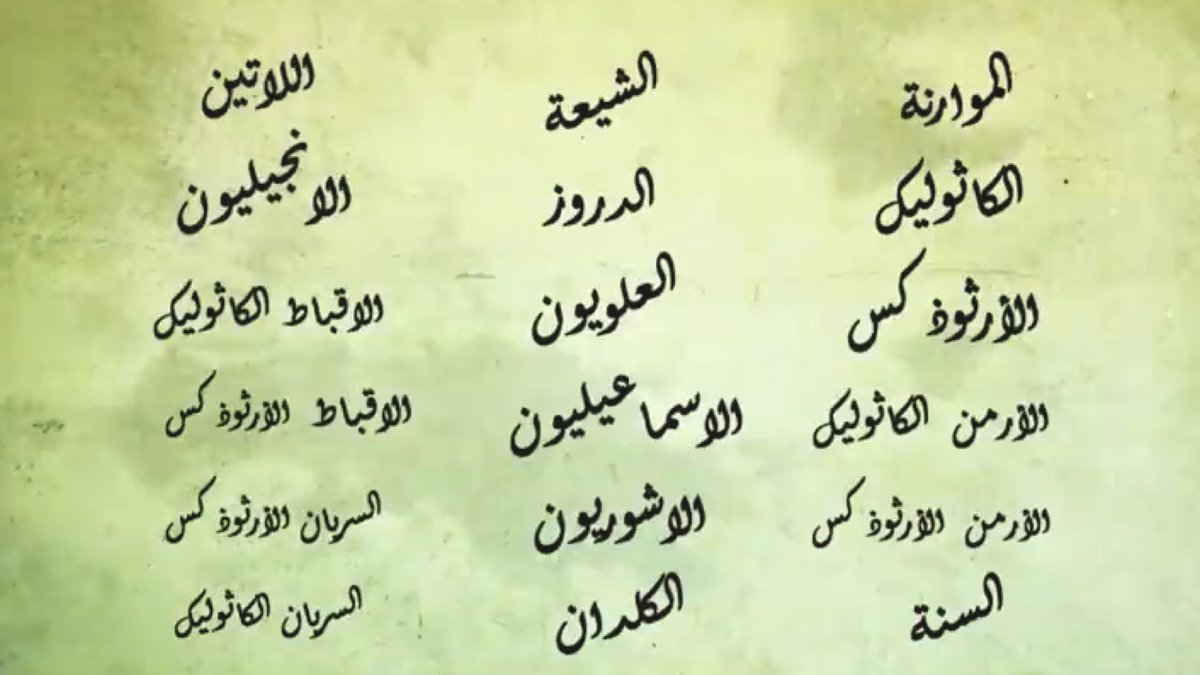 الموارنة
الكاثوليك
الأرثوذكس
الأرمن الكاثوليك
الأرمن الأرثوذكس
السنة
الشيعة
الدروز
العلويون
الاسماعيليون
الاشوريون
الكلدان
اللاتين
الانجيليون
الاقباط الكاثوليك
الاقباط الأرثوذكس
السريان الأرثوذكس
السريان الكاثوليك